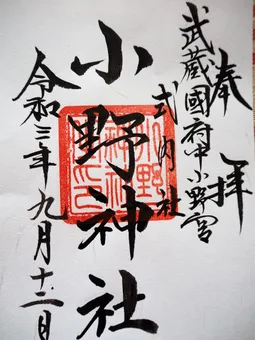 奉拝
武蔵國府中小野宮
式内社
小野神社
令和三年九月十二日